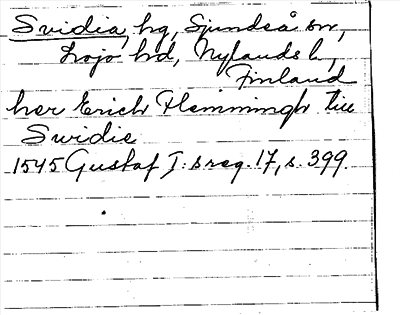 Svidia, hg, Sjundeå sn,
Lojo hd, Nylands l.,
Finland
her Erich Flemmingh till
Swidie
1545 Gustaf I: s reg. 17, s. 399.